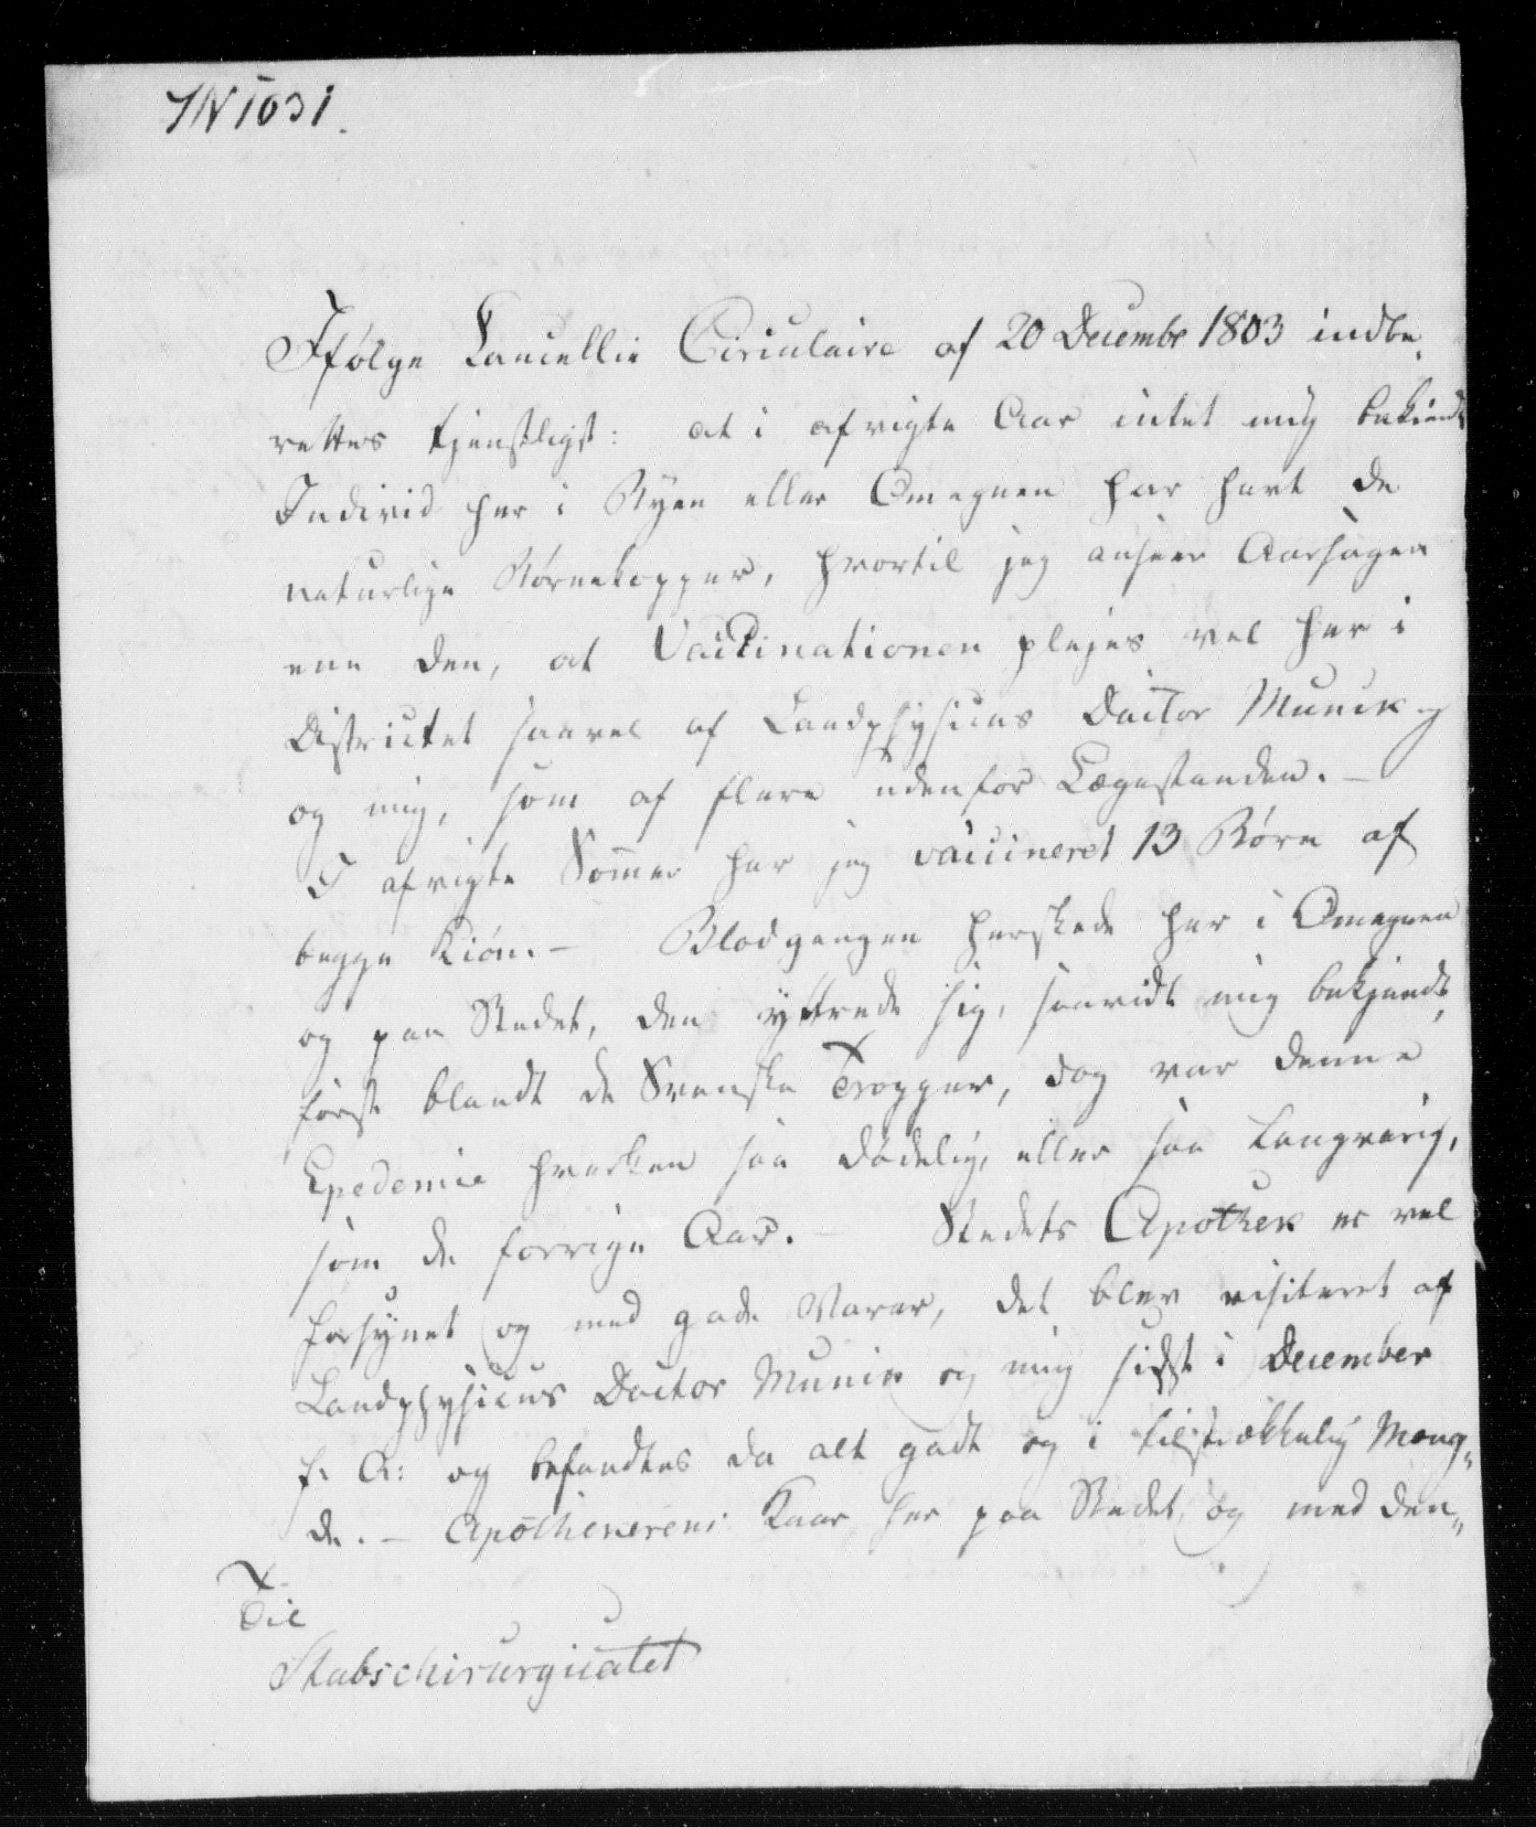 JN 1031.
Ifølge Cancellie Circulaire af 20 Decembr 1803 indbe„
rettes tjenstligst: at i afvigte Aar intet mig bekiendt
Individ her i Byen eller Omegnen har havt de
naturlige Børnekopper, hvortil jeg anseer Aarsagen
ene den, at Vaccinationen plejes vel her i
Districtet saavel af Landphysicus Doctor Munck og
og mig, som af flere udenfor Lægestanden. –
I afvigte Sommer har jeg vaccineret 13 Børn af
begge Kiøn. – Blodgangen herskede her i Omegnen
og paa Stedet, den yttrede sig, saavidt mig bekjendt,
først blandt de Svenske Tropper, dog var denne
Epedemie hverken saa dødelig, eller saa langvarig,
som de forrige Aar. – Stedets Apothek er vel
forsynet og med gode Varer, det blev visiteret af
Landphysicus Doctor Munck og mig sidst i December
f. A: og befandtes da alt godt og i tilstrækkelig Mæng„
de. – Apothekerens Kaar her paa Stedet og med den„
Til
Stabschirurgicatet